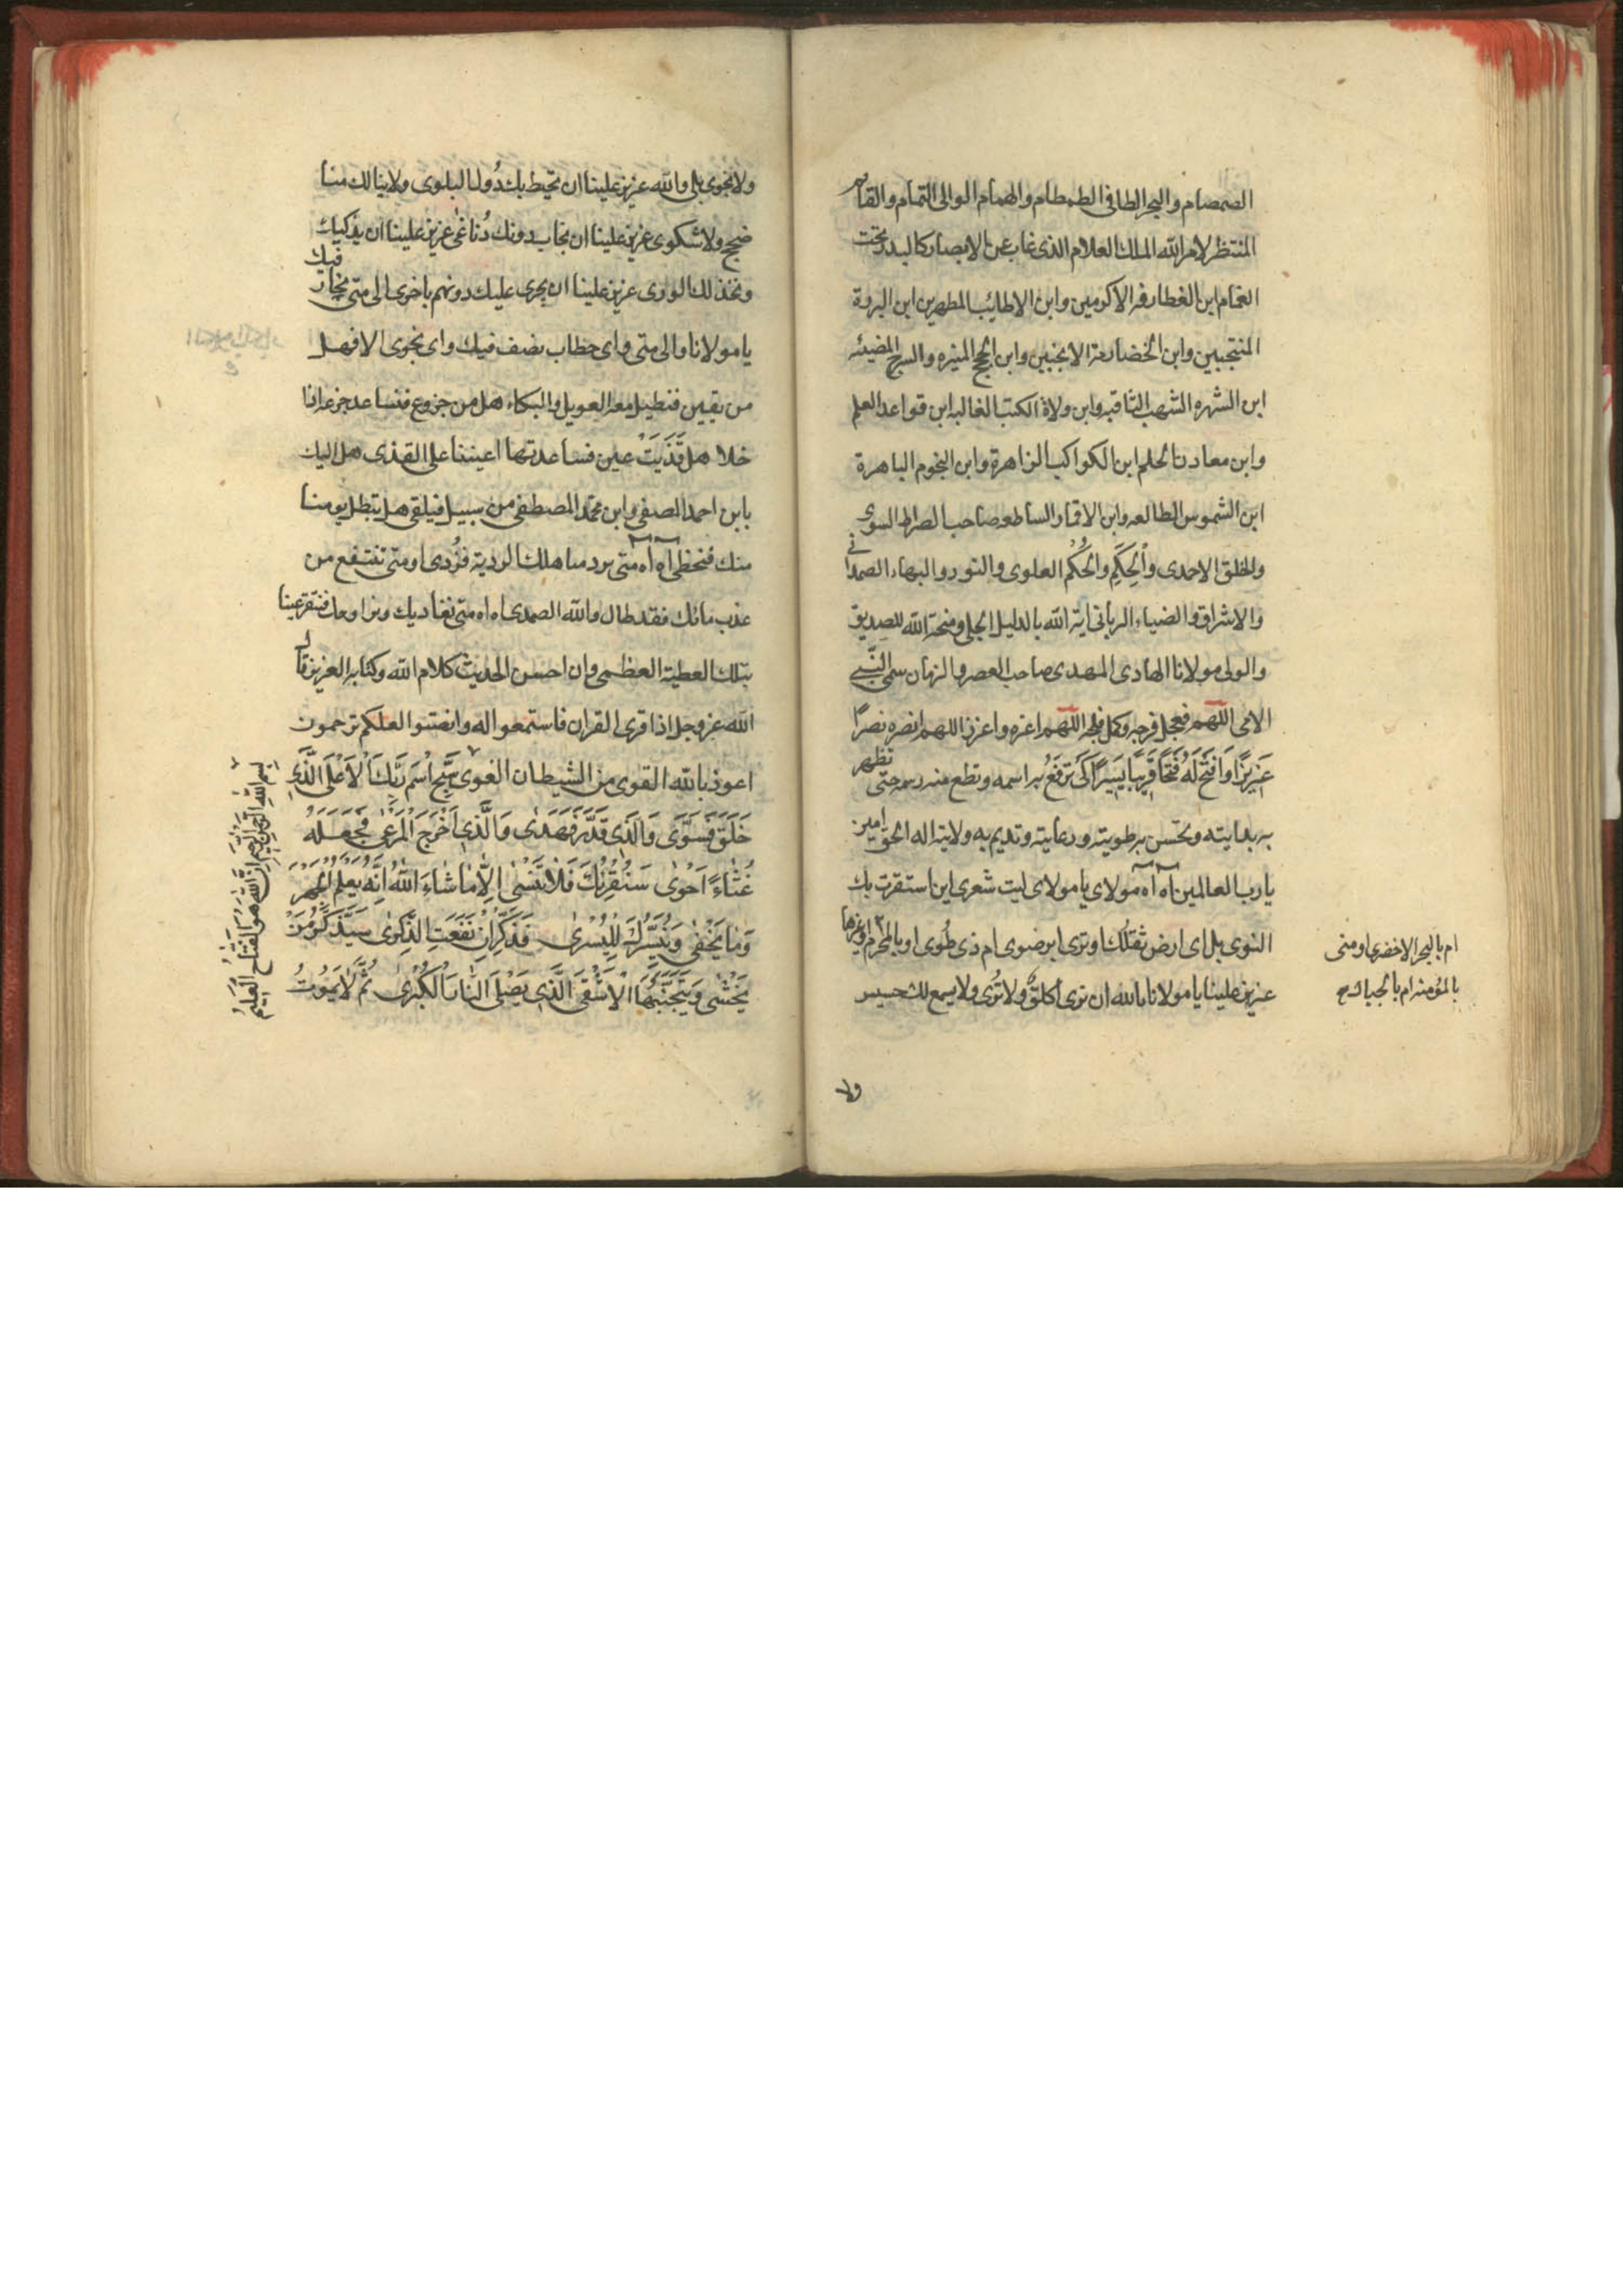 الصمصام والبحر الطافى الطمطام والهمام الوالى التمام والقائم
المنتظر لامر الله الملك العلام الذى غاب عن الابصار كالبدر تحت
الغمام ابن الغطارفه الاكرمين وابن الاطائب المطهرين ابن البررة
المنتجبين وابن الخضارمة الانجبين وابن الحجج المنيره والسرج المضيئه
ابن الشهره الشهب الثاقبه وابن ولاة الكتب الغالبه ابن قواعد العلم
وابن معادن الحلم ابن الكواكب الزاهرة وابن النجوم الباهرة
ابن الشموس الطالعه وابن الاقمار الساطعه صاحب الصراط السوى
والخلق الاحمدى والحِكَمِ والحُكُم العلوى والنور والبهاء الصمدانى
والاشراق والضياء الربانى اية الله بالدليل الجلى ومنحة الله للصديق
والولى مولانا الهادى المهدى صاحب العصر والزمان سمى النَّبى
الامى اللهم فعجل فرجه وكمل فلجه اللهم اعزه واعزز اللهم انصره نصرًا
عَزِيزًا وَافتَح لَهُ فَتحًا قَرِيبًا يَسِيرًا كَى تَرفَعُ به اسمه وتطلع منه رسمه حتى تظهر
به بدايته وتحسن به طويته ورعايته وتديم به ولايته اله الحق امين
يا رب العالمين اه اه مولاي يا مولاى ليت شعرى اين استقرت بك
النوى بل اى ارض تقلك او ثرى ابرضوى ام ذى طُوى او بالمحرم او غيرها
ام بالبحر الاخضر هاومنى
بالمؤمنه ام بالجباك
عزيز علينا يا مولانا بالله ان نرى اكلك ولا تُرى ولا يسمع لك حسيس
ولا
ولا نجوى بلى والله عزيز علينا ان تحيط بك دُولنا البلوى ولا ينالك منا
ضجيج ولا شكوى عزيز علينا ان نجاب دونك دُناغى عزيز علينا ان نبكيك
ونخذلك الورى عزيز علينا ان يجرى عليك دونهم ما جرى الى متى نجار فيك
يا مولانا والى متى واى خطاب نصف فيك واى نجوى الا فهل
من يقين فنطيل معه العويل والبكاء هل من جزوع فنساعد جزعه اذا
خلا هل قَذِيَتْ عين فساعدتها اعيننا على القذى هل اليك
يابن احمد الصفى وابن محمد المصطفى من سبيل فيلقى هل يتصل يومنا
منك فنحظى اه اه متى نرد مناهلك الروية فنُروى او متى ننتفع من
عذب مائك فقد طال والله الصدى اه اه متى نغاديك ونراوحك فنقر عينا
بتلك العطية العظمى وان احسن الحديث كلام الله وكتابه العزيز قال
الله عز وجل اذا قرى القران فاستمعوا له وانصتوا لعلكم ترحمون
اعوذ بالله القوى من الشيطان الغوى سَبِّحِ اسْمَ رَبِّكَ الْاَعْلَى الَّذِى
خَلَقَ فَسَوّٰى وَالَّذِى قَدَّرَ فَهَدٰى وَالَّذِى اَخْرَجَ الْمَرْعٰى فَجَعَلَهُ
غُثَاءً اَحْوٰى سَنُقْرِئُكَ فَلَا تَنْسٰى اِلَّا مَا شَاءَ اللّٰهُ اِنَّهُ يَعْلَمُ الْجَهْرَ
وَمَا يَخْفٰى وَنُيَسِّرُكَ لِلْيُسْرٰى فَذَكِّرْ اِنْ نَفَعَتِ الذِّكْرٰى سَيَذَّكَّرُ مَنْ
يَخْشٰى وَيَتَجَنَّبُهَا الْاَشْقَى الَّذِى يَصْلَى النَّارَ الْكُبْرٰى ثُمَّ لَا يَمُوتُ
بسم الله الرحمن الرحيم ان الله هو الفتاح العليم